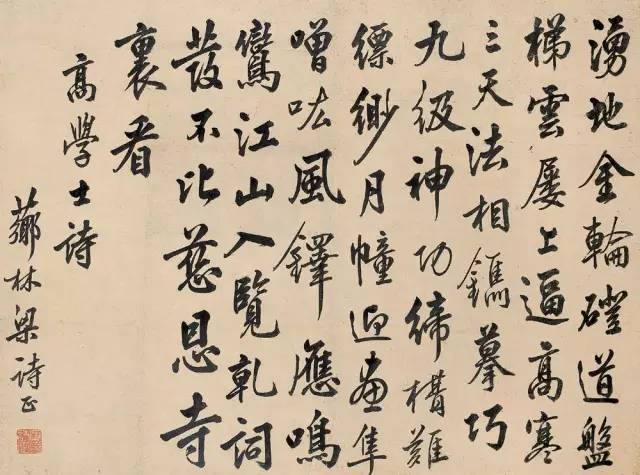 湧地金輪磴道盤
梯雲屢上逼高寒
三天法相鐫摹巧
九級神功締構難
縹緲月幢迎畫隼
噌吰風鐸應鳴
鸞江山入覽乾詞
發不比慈恩寺
裏看
高學士詩
薌林梁詩正